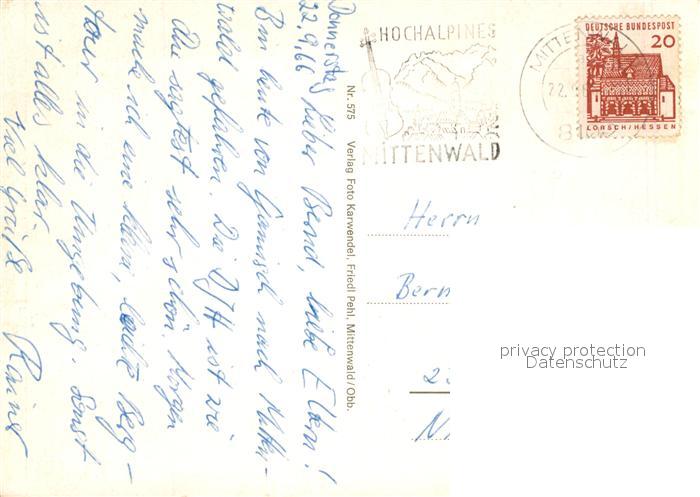 Donnerstag
22.9.66 Lieber Bernd, liebe Eltern!
Bin heute von Garmisch nach Mitten-
wald gefahren. Die DJH ist wie
du sagtest sehr schön. Morgen
mache ich eine kleine, leichte Berg-
tour in die Umgebung. Sonst
ist alles klar.
Viel Grüße
Rainer
Nr. 575 Verlag Foto Karwendel, Friedl Pehl, Mittenwald/Obb.
HOCHALPINES
MITTENWALD
MITTENW
22.9.66
81
DEUTSCHE BUNDESPOST
20
LORSCH/HESSEN
Herrn
Bern
2
N
privacy protection
Datenschutz